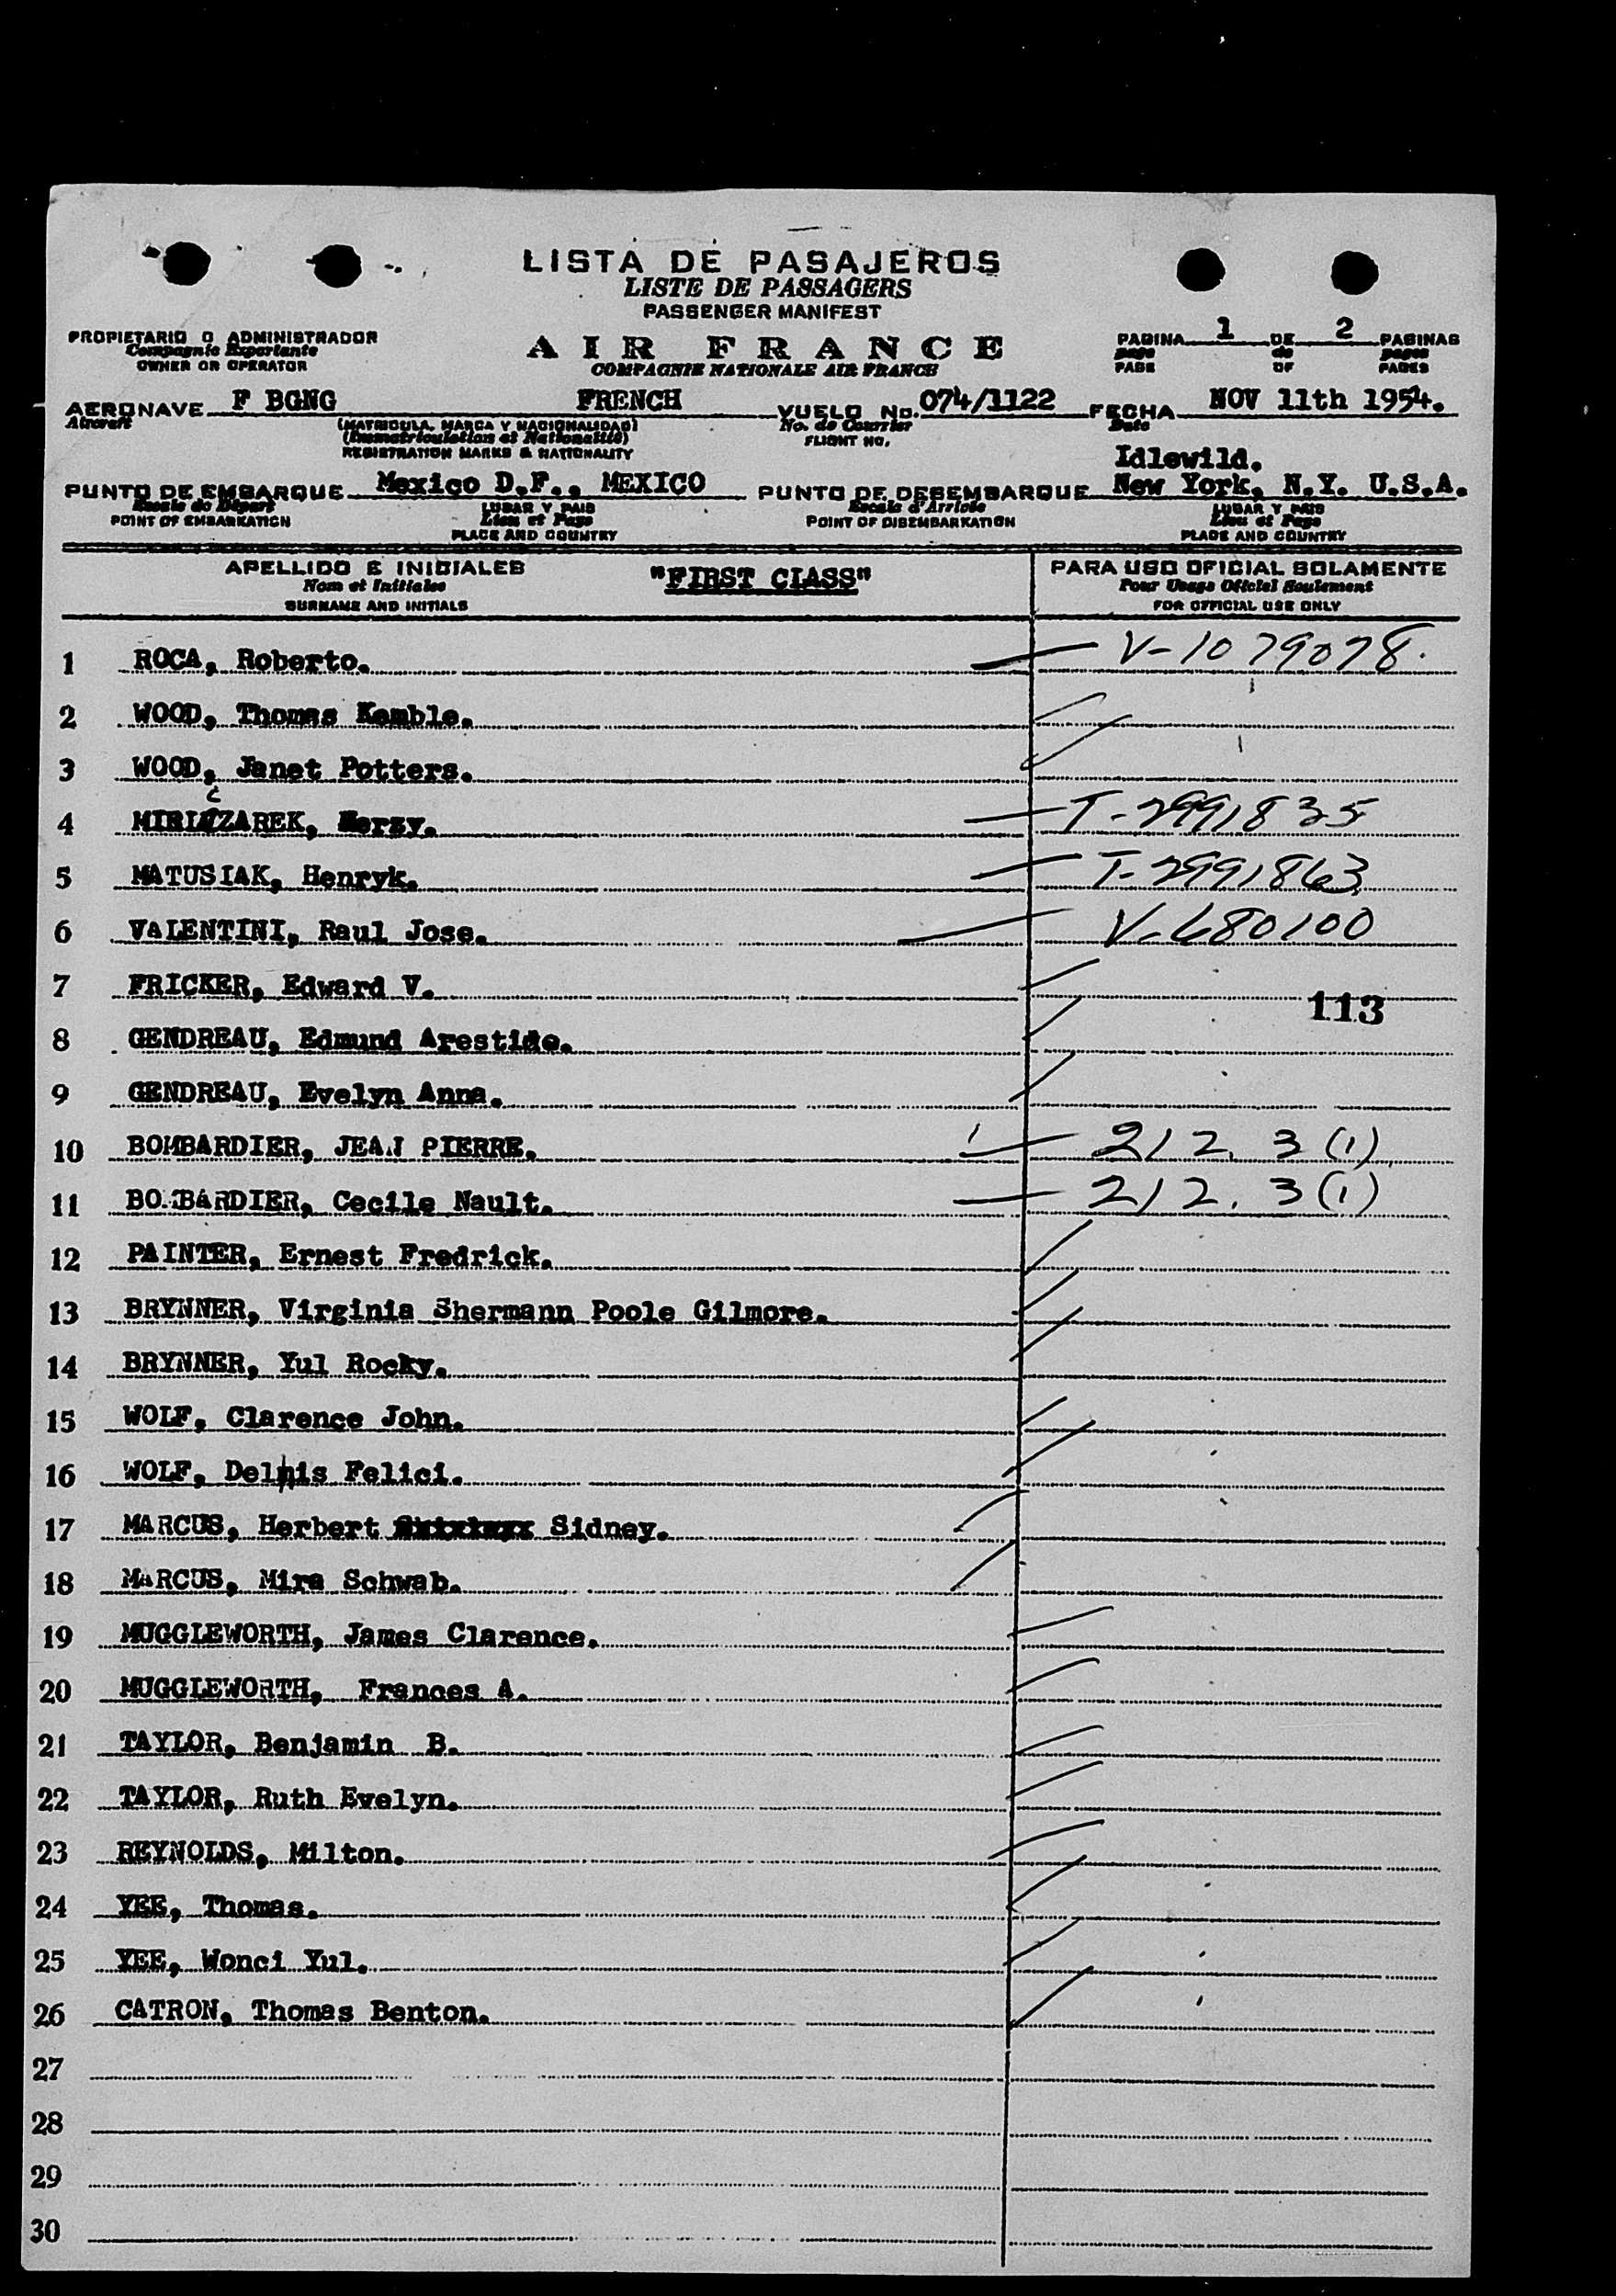 LISTA DE PASAJEROS
LISTE DE PASSAGERS
PASSENGER MANIFEST
PROPIETARIO O ADMINISTRADOR
Compagnie Exportante
OWNER OR OPERATOR
AIR FRANCE
COMPAGNIE NATIONALE AIR FRANCE
PAGINA 1 DE 2 PAGINAS
page de pages
PAGE OF PAGES
AERONAVE F BGNG FRENCH VUELO No. 074/1122 FECHA NOV 11th 1954.
Aircraft (MATRICULA, MARCA Y NACIONALIDAD) No. de Courrier Date
(Immatriculation et Nationalité) FLIGHT NO.
REGISTRATION MARKS & NATIONALITY
Idlewild.
PUNTO DE EMBARQUE Mexico D.F., MEXICO PUNTO DE DESEMBARQUE New York, N.Y. U.S.A.
Escale de Départ LUGAR Y PAIS Escale d'Arrivée LUGAR Y PAIS
POINT OF EMBARKATION Lieu et Pays POINT OF DISEMBARKATION Lieu et Pays
PLACE AND COUNTRY PLACE AND COUNTRY
APELLIDO E INICIALES "FIRST CLASS" PARA USO OFICIAL SOLAMENTE
Nom et Initiales Pour Usage Officiel Seulement
SURNAME AND INITIALS FOR OFFICIAL USE ONLY
1 ROCA, Roberto. V-1079078.
2 WOOD, Thomas Kemble.
3 WOOD, Janet Potters.
4 MIRICZAREK, Jerzy. T-2991835
5 MATUSIAK, Henryk. T-2991863
6 VALENTINI, Raul Jose. V-680100
7 FRICKER, Edward V.
113
8 GENDREAU, Edmund Arestide.
9 GENDREAU, Evelyn Anna.
10 BOMBARDIER, JEAN PIERRE. 212.3(1)
11 BOMBARDIER, Cecile Nault. 212.3(1)
12 PAINTER, Ernest Fredrick.
13 BRYNNER, Virginia Shermann Poole Gilmore.
14 BRYNNER, Yul Rocky.
15 WOLF, Clarence John.
16 WOLF, Delnis Felici.
17 MARCUS, Herbert Sidney.
18 MARCUS, Mira Schwab.
19 MUGGLEWORTH, James Clarence.
20 MUGGLEWORTH, Frances A.
21 TAYLOR, Benjamin B.
22 TAYLOR, Ruth Evelyn.
23 REYNOLDS, Milton.
24 YEE, Thomas.
25 YEE, Wonci Yul.
26 CATRON, Thomas Benton.
27
28
29
30